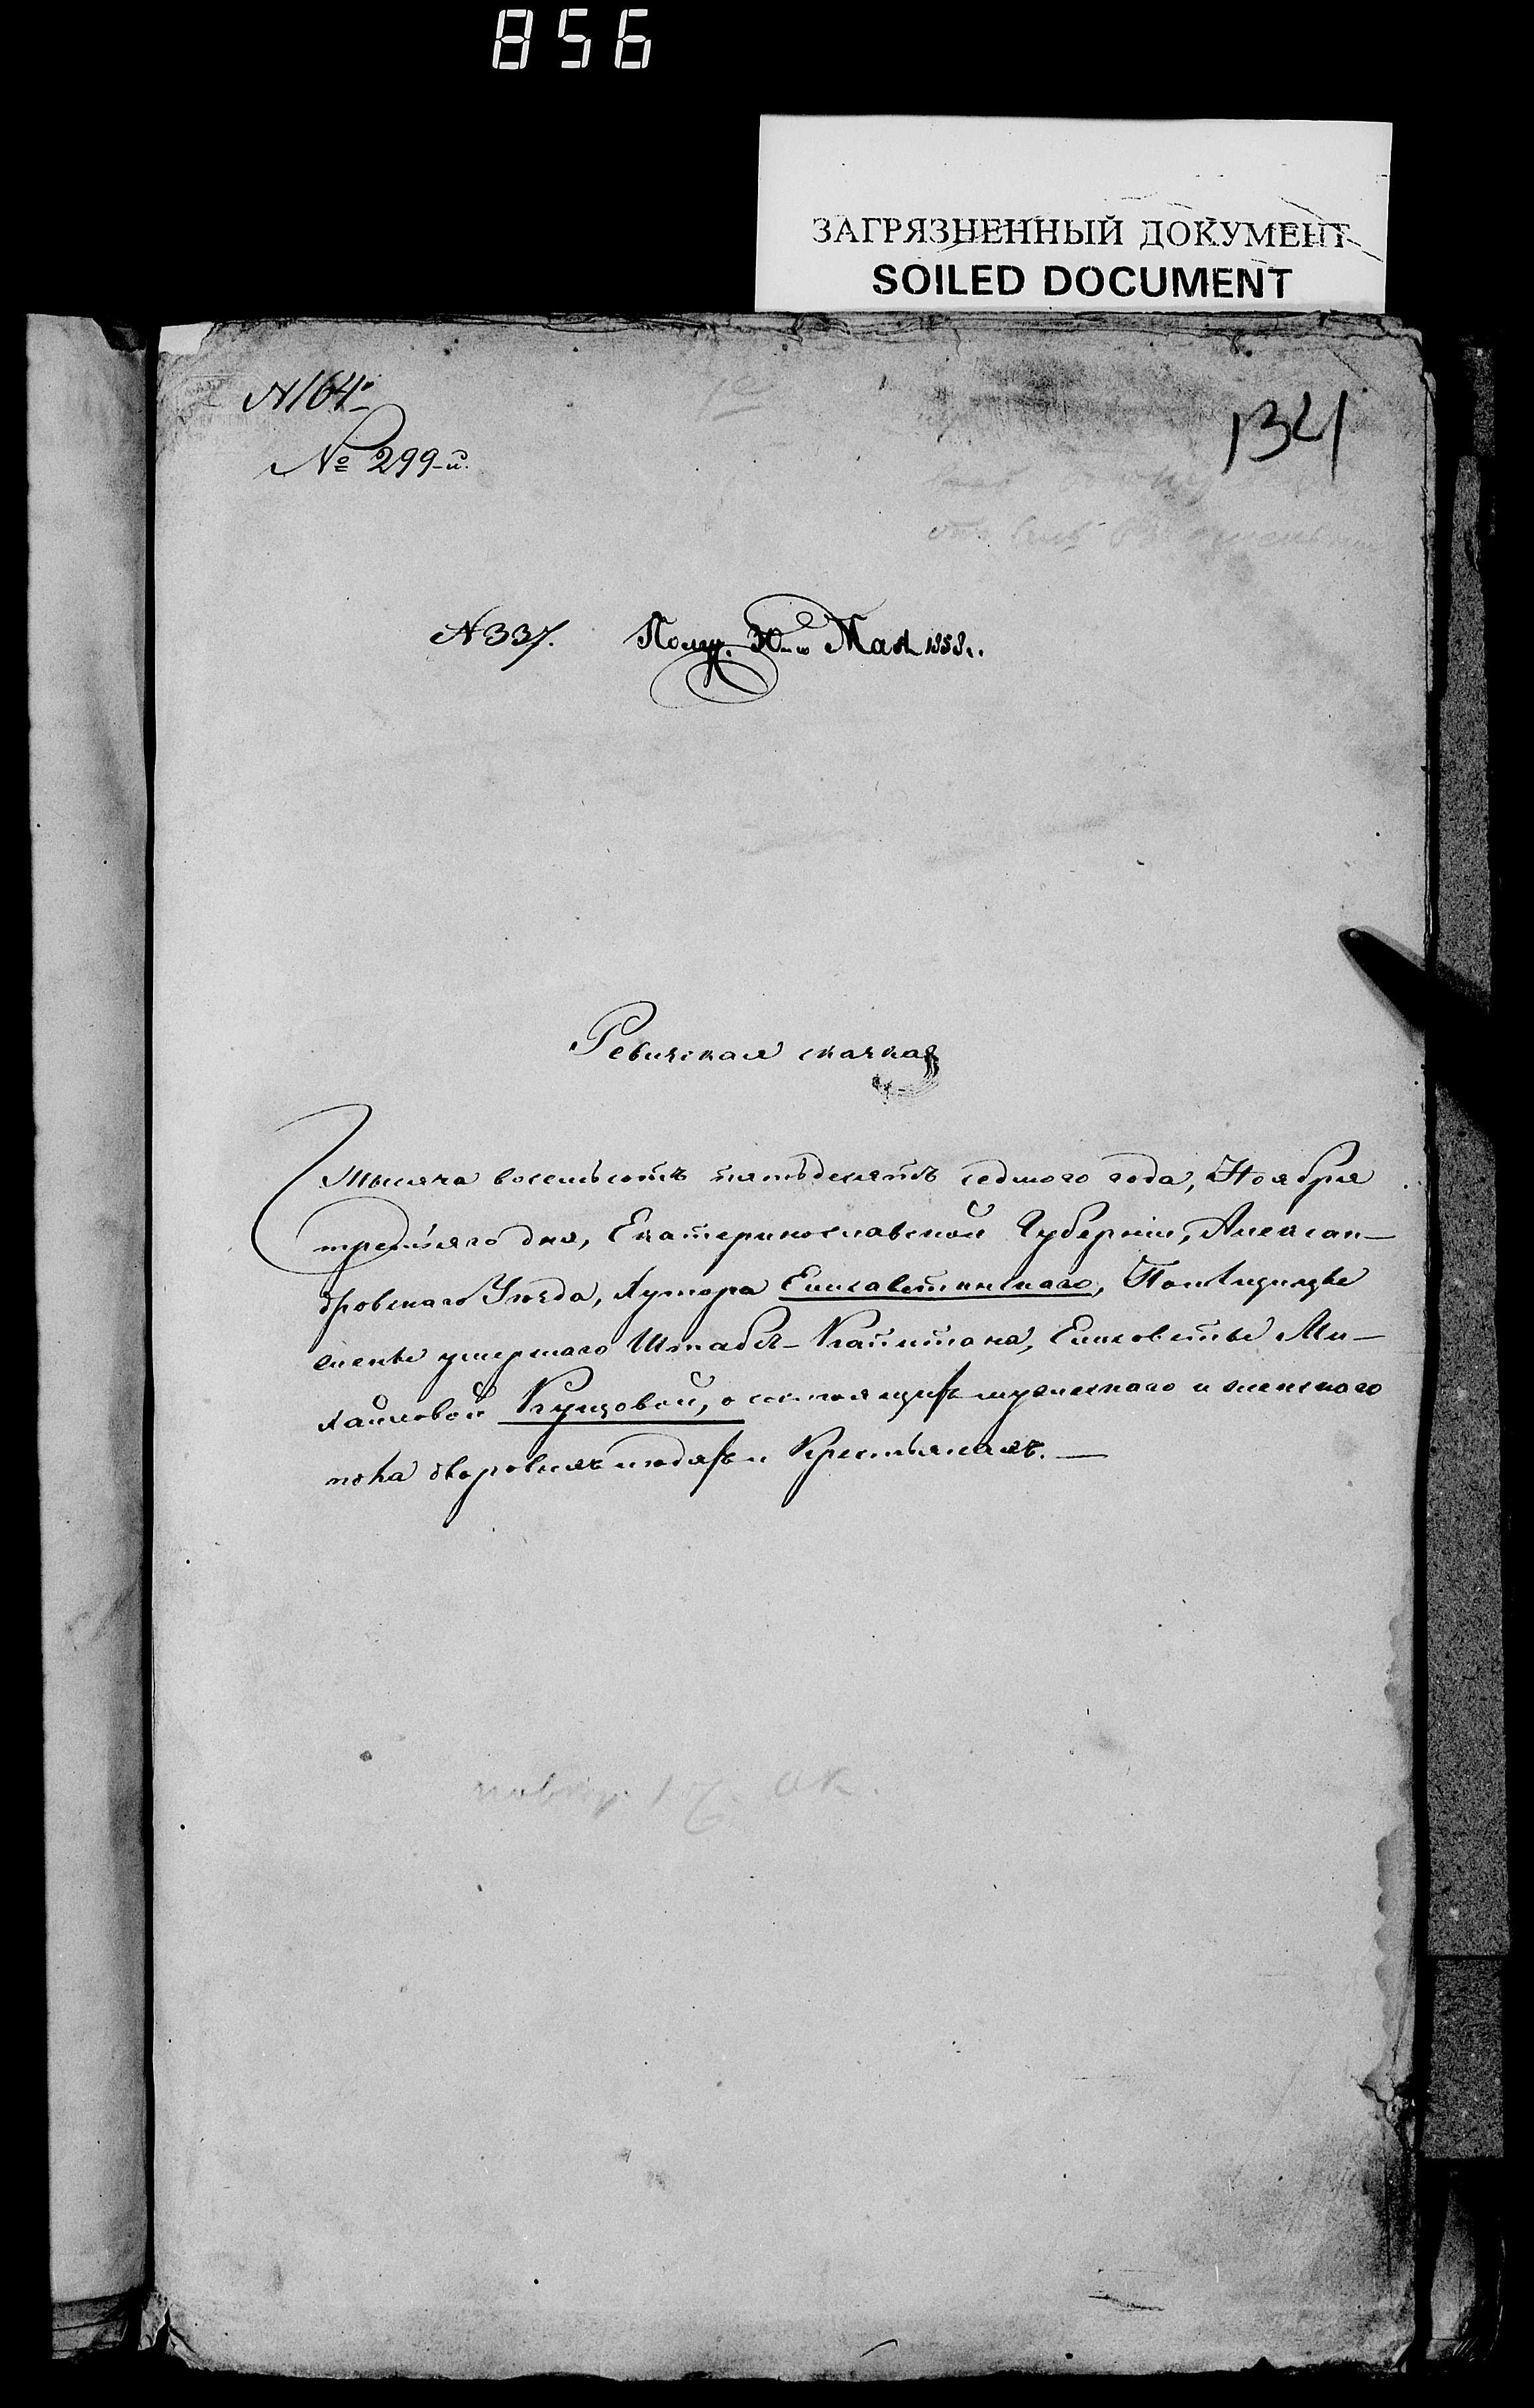 856
ЗАГРЯЗНЕННЫЙ ДОКУМЕНТ
SOILED DOCUMENT
N 164.
№ 299-й.
134
N 337. Получ. 30-го Мая 1858 г.
Ревизская сказка
Тысяча восемьсотъ пятьдесятъ седмого года, Ноября
третьяго дня, Екатеринославской Губерніи, Алексан-
дровскаго Уѣзда, Хутора Елисаветинскаго, Помѣщицы
умершаго Штабсъ-Капитана, Елисаветы Ми-
хайловой Купцовой, о состоящихъ мужескаго и женскаго
пола дворовыхъ людяхъ и Крестьянахъ.—